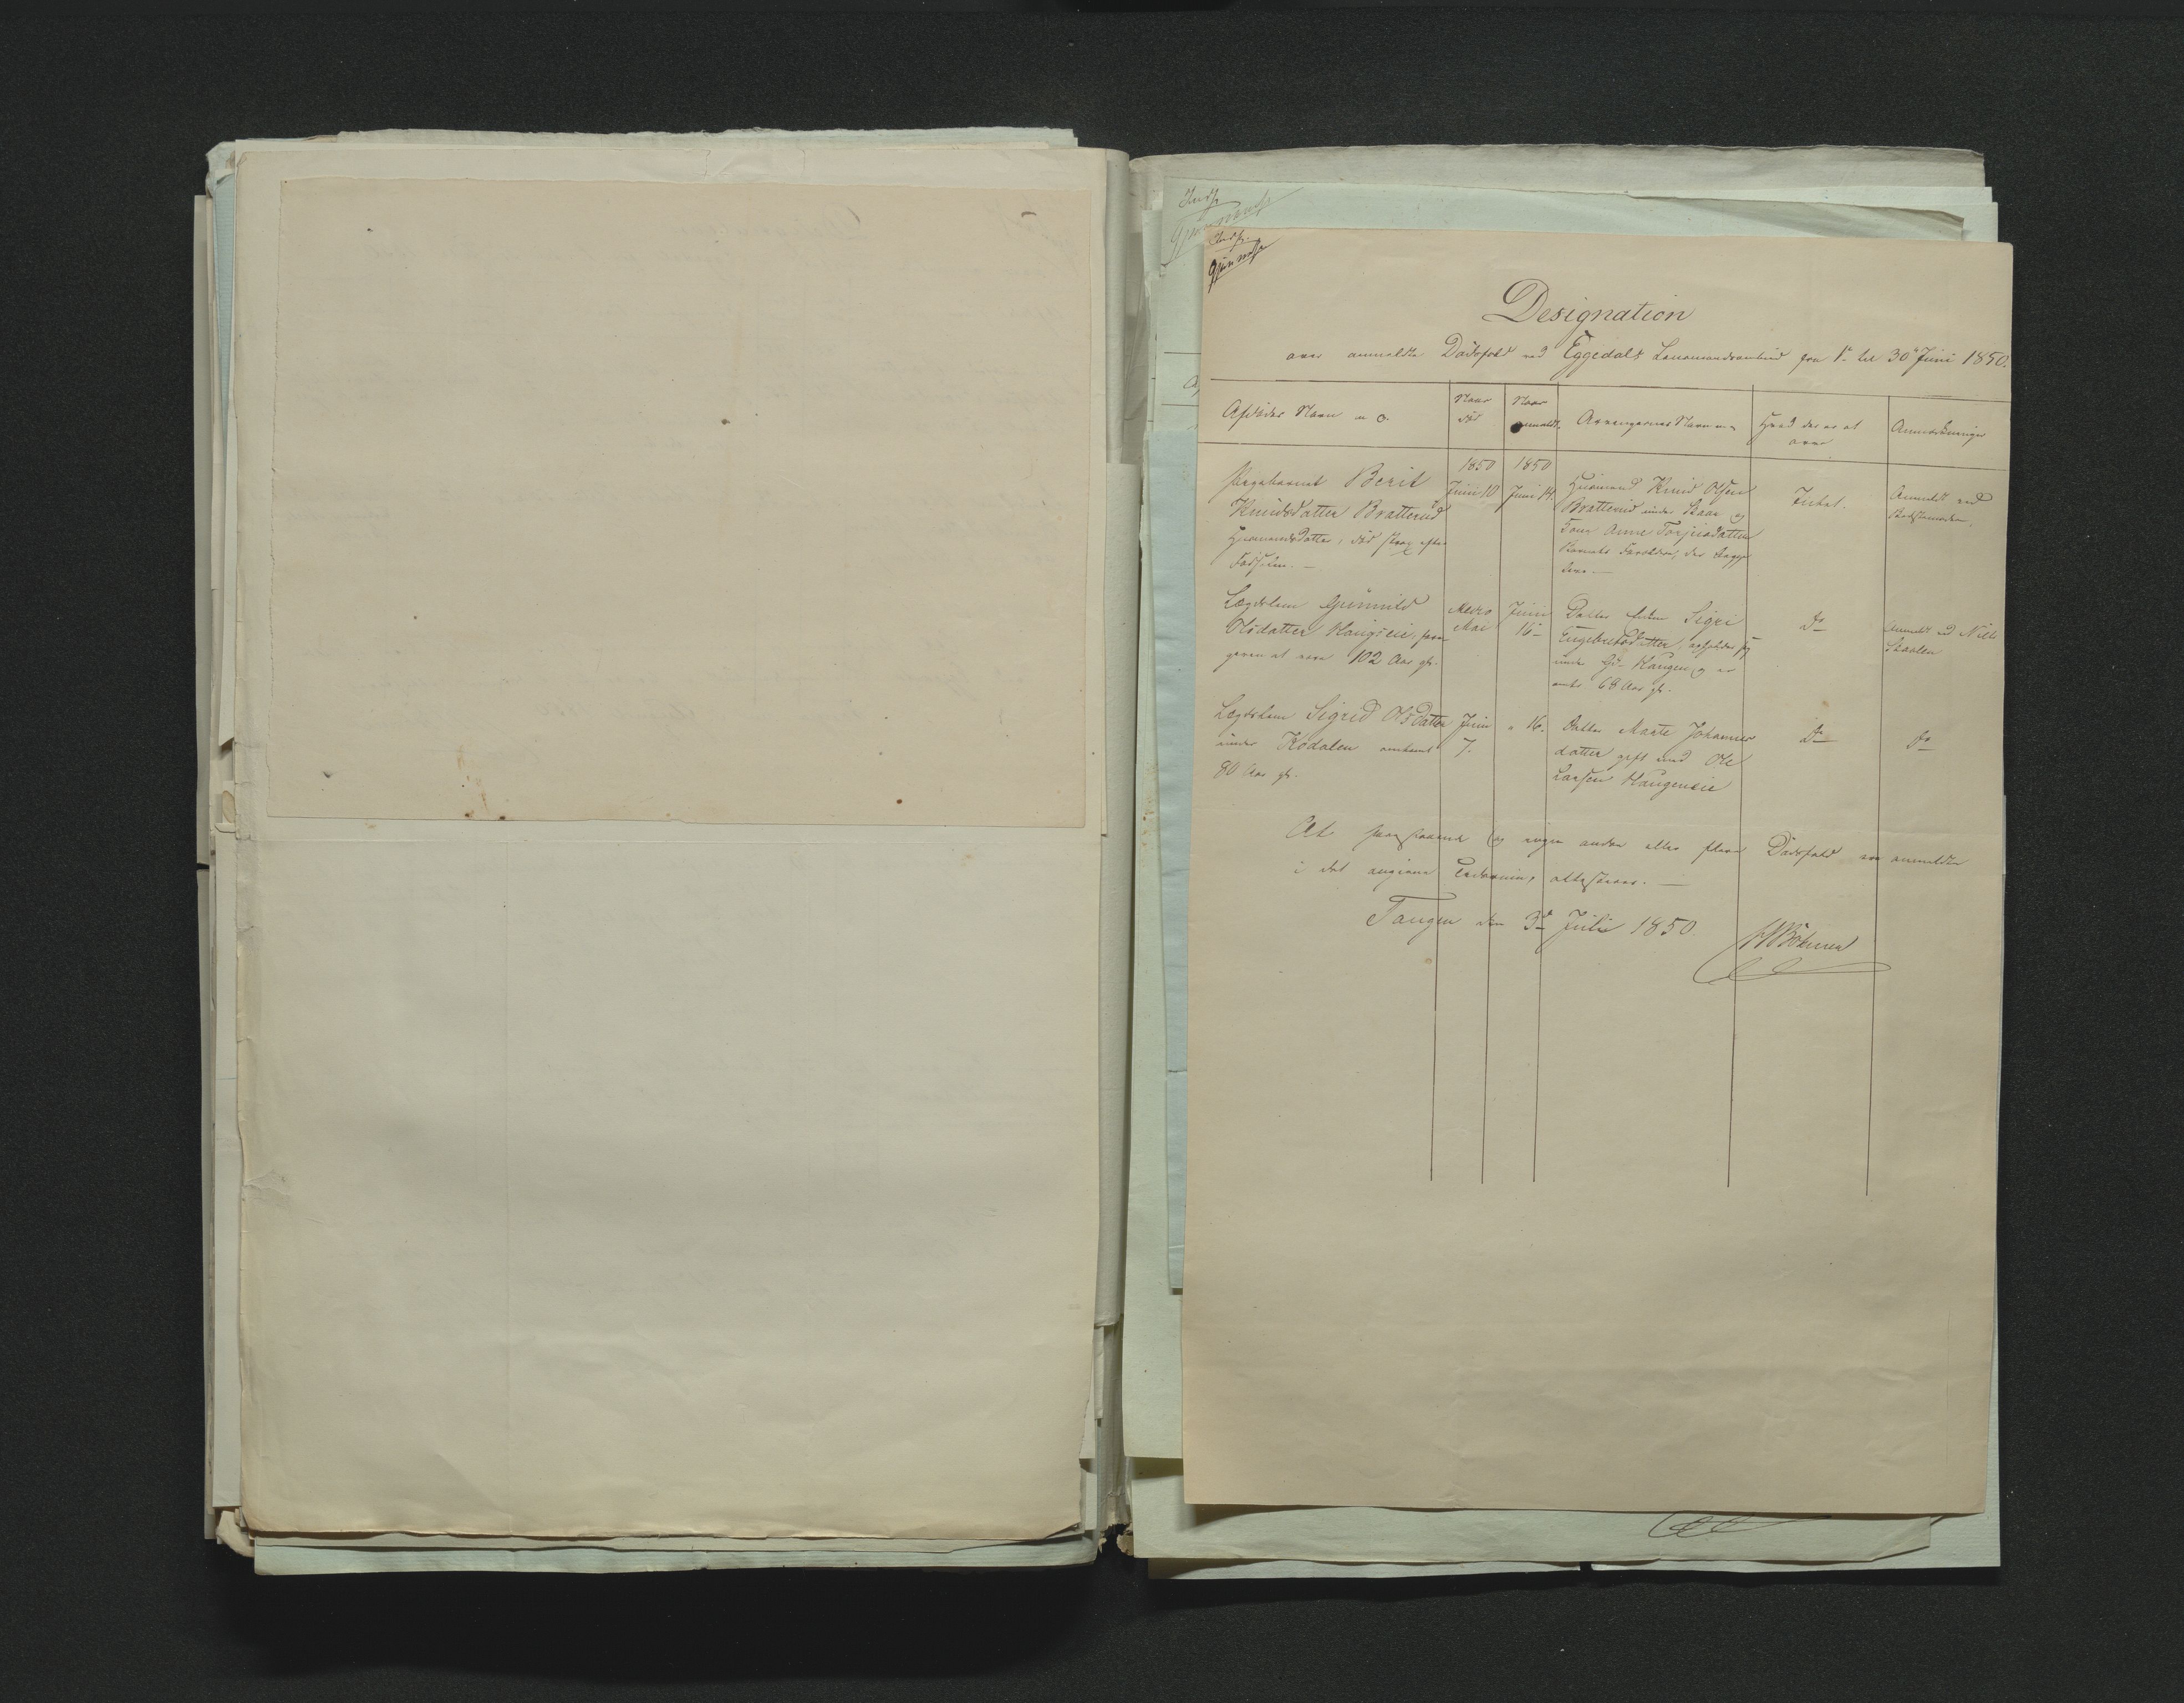 Indf.
Designation
over anmeldte Dödsfald ved Eggedals Lensmandsombud fra 1ste til 30te Juni 1850.
Afdödes Navn m. v.
Naar död
Naar anmeldt.
Arvingernes Navn m. v.
Hvad der er at arve
Anmærkninger
1850
1850
Pigebarnet Berit
Knudsdatter Bratterud
Huusmandsdatter, död strax efter
Födselen. —
Juni 10
Juni 14.
Huusmand Knud Olsen
Bratterud under Skaar og
Kone Anne Torjusdatter
Barnets Forældre, der begge
leve. —
Intet.
Anmeldt ved
Lægdslem Gunnild
Olsdatter Haugseie, for-
geven at være 102 Aar gl.
Medio
Mai
Juni
16-
Datter Enken Sigri
Engebretsdatter, opholder sig
under Gd- Haugen, og er
omtr 68 Aar gl.
Do
Anmeldt ved Nills
Skaalen
Lægdslem Sigrid Olsdatter
under Kodalen omtrent
80 Aar gl.
Juni
7.
" 16.
Datter Marte Johannes
datter gift med Ole
Larsen Haugeneie
Do
Do
At foranstaaende og ingen andre eller flere Dödsfald ere anmeldte
i det angivne Tidsrum, attesteres. —
Tangen den 3d Juli 1850.